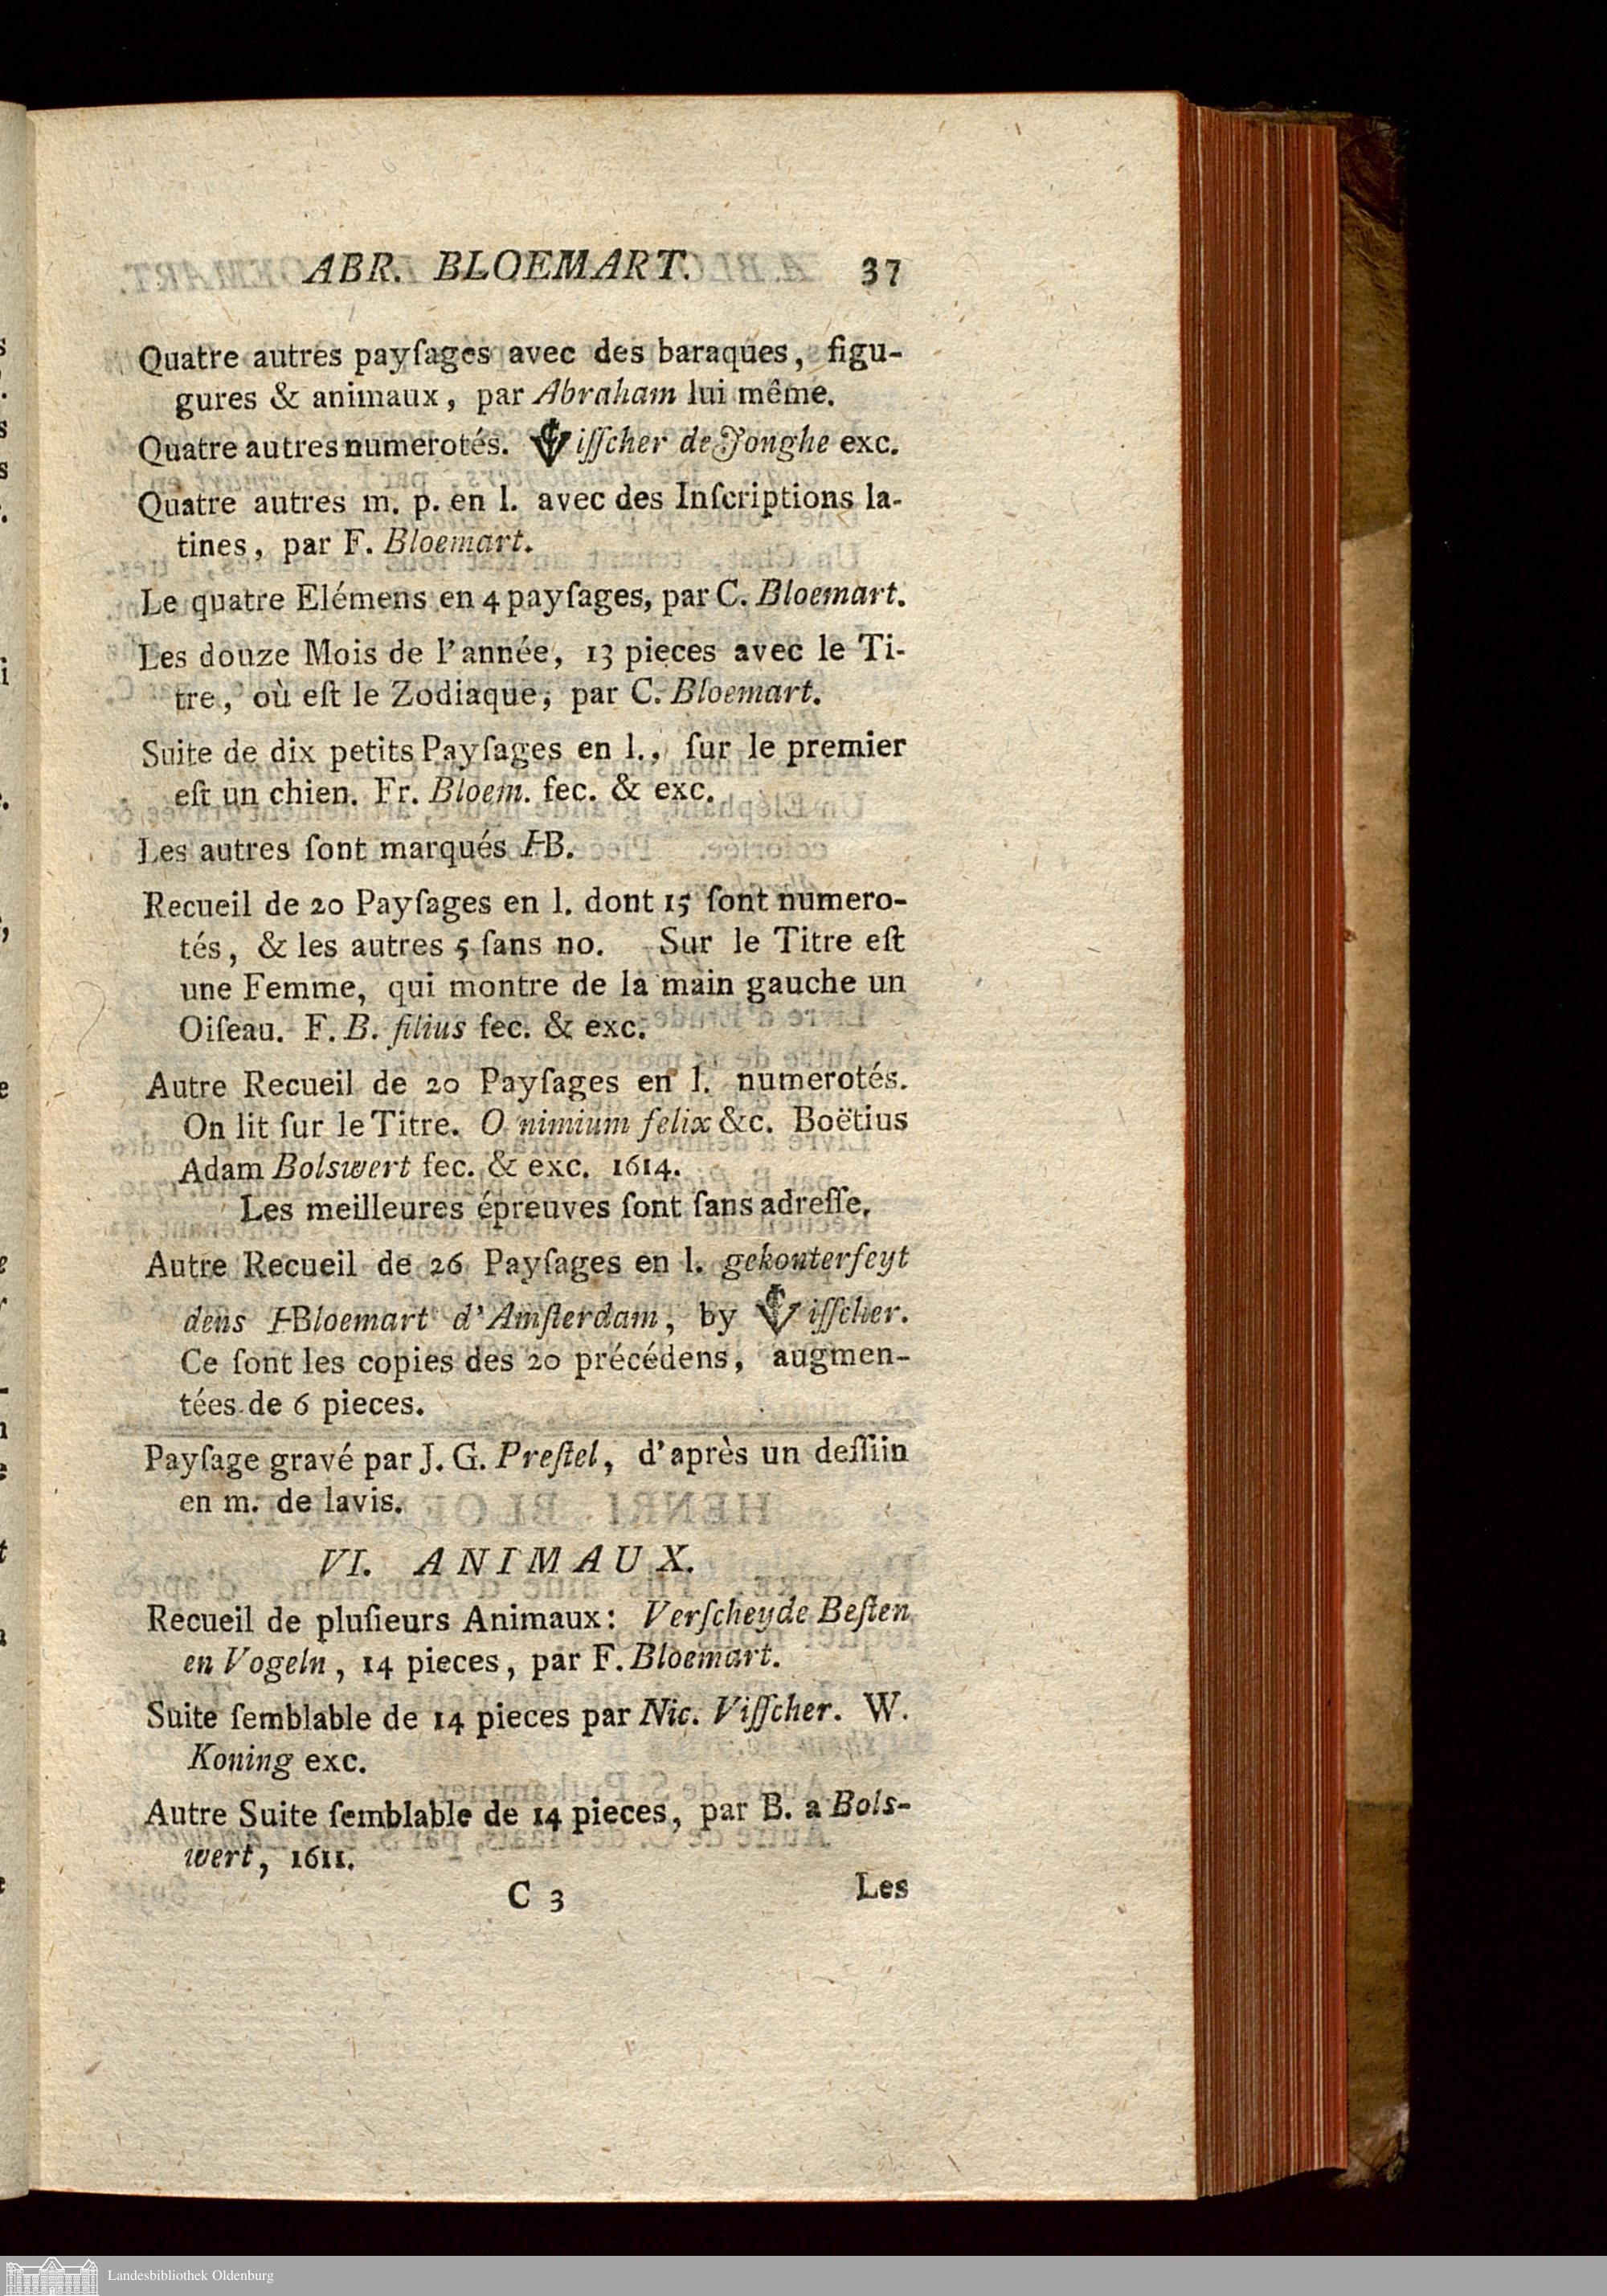 ABR. BLOEMART. 37
Quatre autres payſages avec des baraques, figu-
gures & animaux, par Abraham lui même.
Quatre autres numerotés. Viſſcher de Jonghe exc.
Quatre autres m. p. en l. avec des Inſcriptions la-
tines, par F. Bloemart.
Le quatre Elémens en 4 payſages, par C. Bloemart.
Les douze Mois de l'année, 13 pieces avec le Ti-
tre, où eſt le Zodiaque, par C. Bloemart.
Suite de dix petits Payſages en l., ſur le premier
eſt un chien. Fr. Bloem. fec. & exc.
Les autres ſont marqués HB.
Recueil de 20 Payſages en l. dont 15 ſont numero-
tés, & les autres 5 ſans no. Sur le Titre eſt
une Femme, qui montre de la main gauche un
Oiſeau. F. B. filius fec. & exc.
Autre Recueil de 20 Payſages en l. numerotés.
On lit ſur le Titre. O nimium felix &c. Boëtius
Adam Bolswert fec. & exc. 1614.
Les meilleures épreuves ſont ſans adreſſe.
Autre Recueil de 26 Payſages en l. gekonterfeyt
dens HBloemart d'Amſterdam, by Viſſcher.
Ce ſont les copies des 20 précédens, augmen-
tées de 6 pieces.
Payſage gravé par J. G. Preſtel, d'après un deſſiin
en m. de lavis.
VI. ANIMAUX.
Recueil de pluſieurs Animaux: Verſcheyde Beſten
en Vogeln, 14 pieces, par F. Bloemart.
Suite ſemblable de 14 pieces par Nic. Viſſcher. W.
Koning exc.
Autre Suite ſemblable de 14 pieces, par B. a Bols-
wert, 1611.
C 3 Les
Landesbibliothek Oldenburg